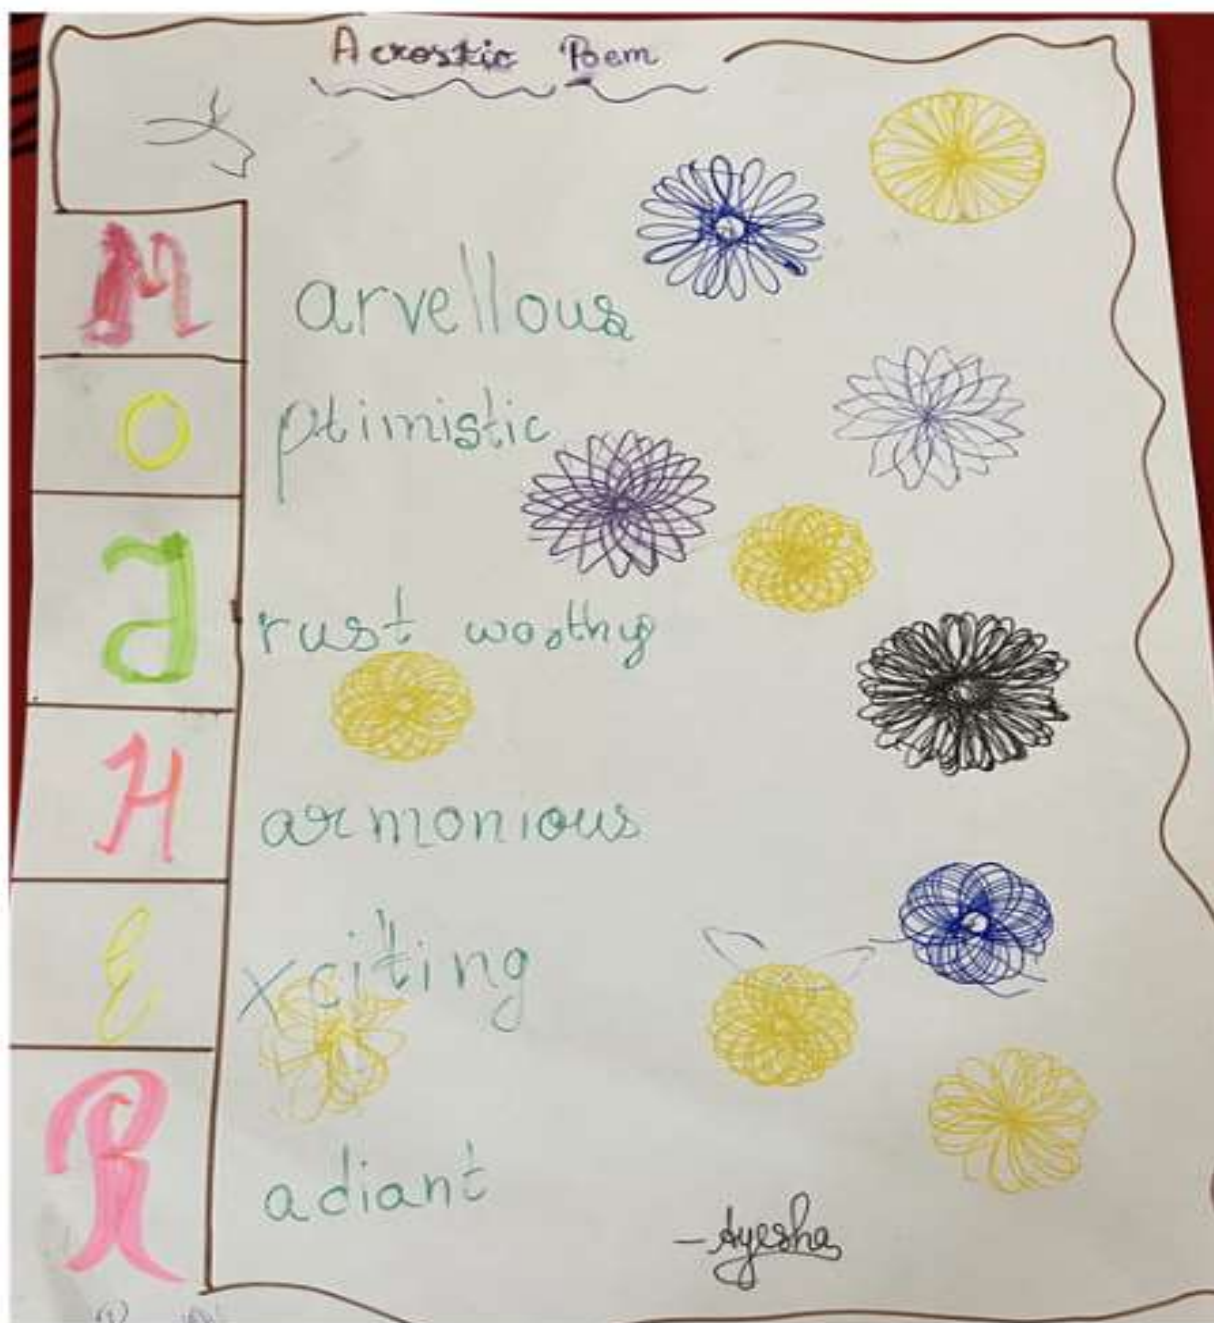 Acrostic Poem
M arvellous
O ptimistic
T rust worthy
H armonious
E xciting
R adiant
- Ayesha